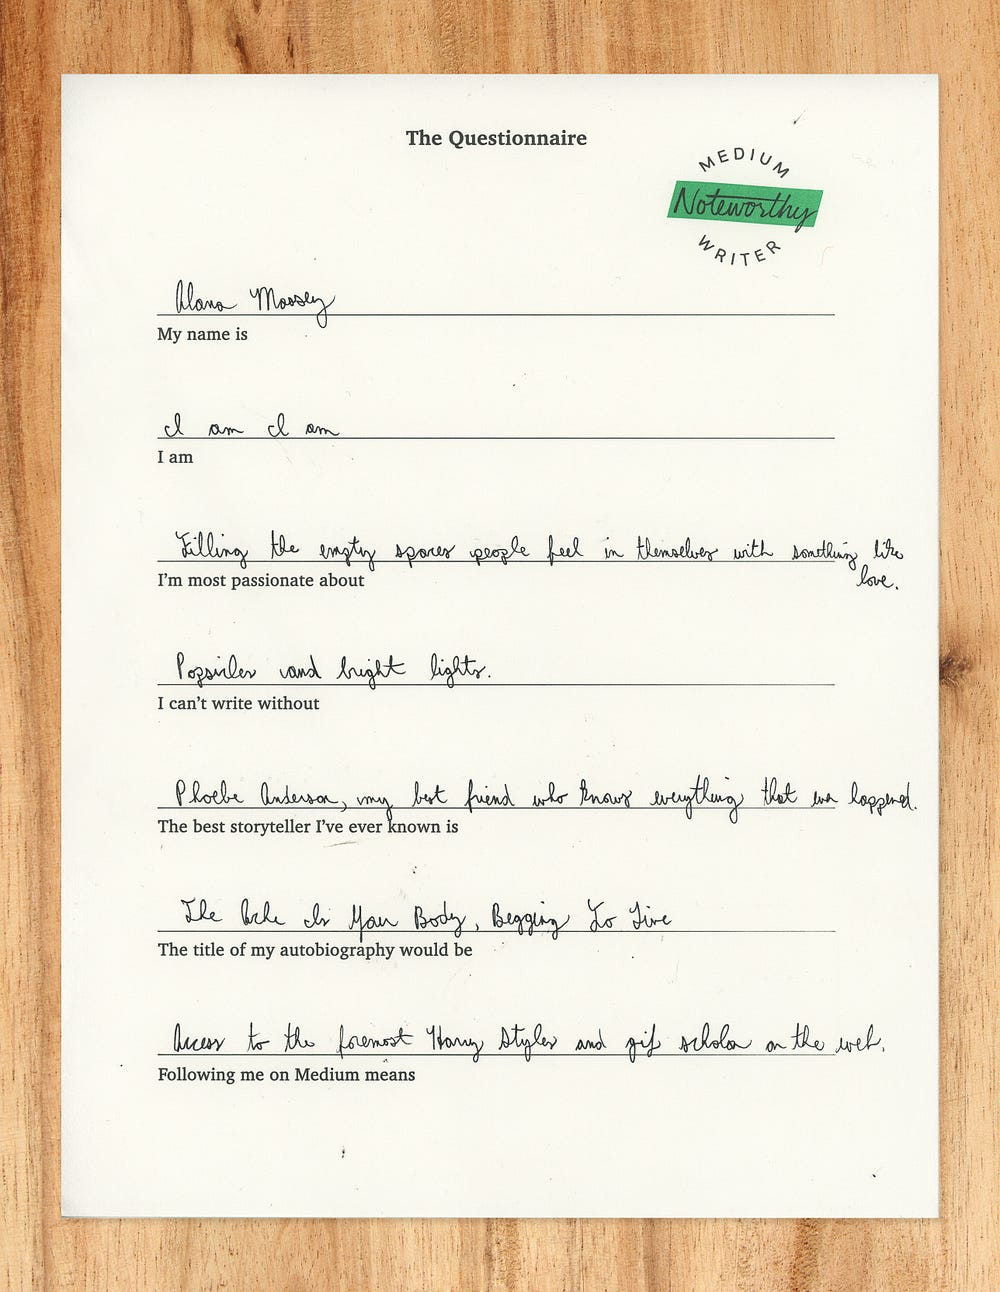 The Questionnaire
MEDIUM
Noteworthy
WRITER
Alana Massey
My name is
I am I am
I am
Filling the empty spaces people feel in themselves with something like
love.
I'm most passionate about
Popsicles and bright lights.
I can't write without
Phoebe Anderson, my best friend who knows everything that ever happened.
The best storyteller I've ever known is
The Ache Is Your Body, Begging To Live
The title of my autobiography would be
Access to the foremost Harry Styles and gif scholar on the web.
Following me on Medium means